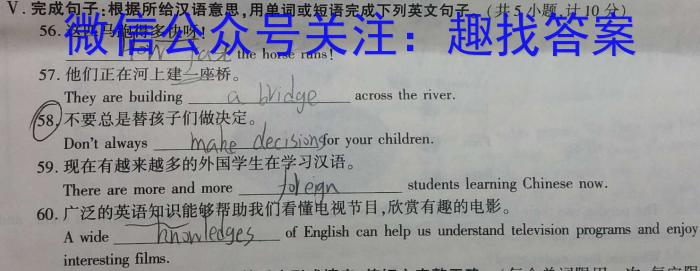 V. 完成句子:根据所给汉语意思,用单词或短语完成下列英文句子。(共5小题,计10分)
微信公众号关注：趣找答案
56.
the horse runs!
57. 他们正在河上建一座桥。
They are building a bridge across the river.
58. 不要总是替孩子们做决定。
Don't always make decisions for your children.
59. 现在有越来越多的外国学生在学习汉语。
There are more and more foreign students learning Chinese now.
60. 广泛的英语知识能够帮助我们看懂电视节目,欣赏有趣的电影。
A wide knowledges of English can help us understand television programs and enjoy
interesting films.